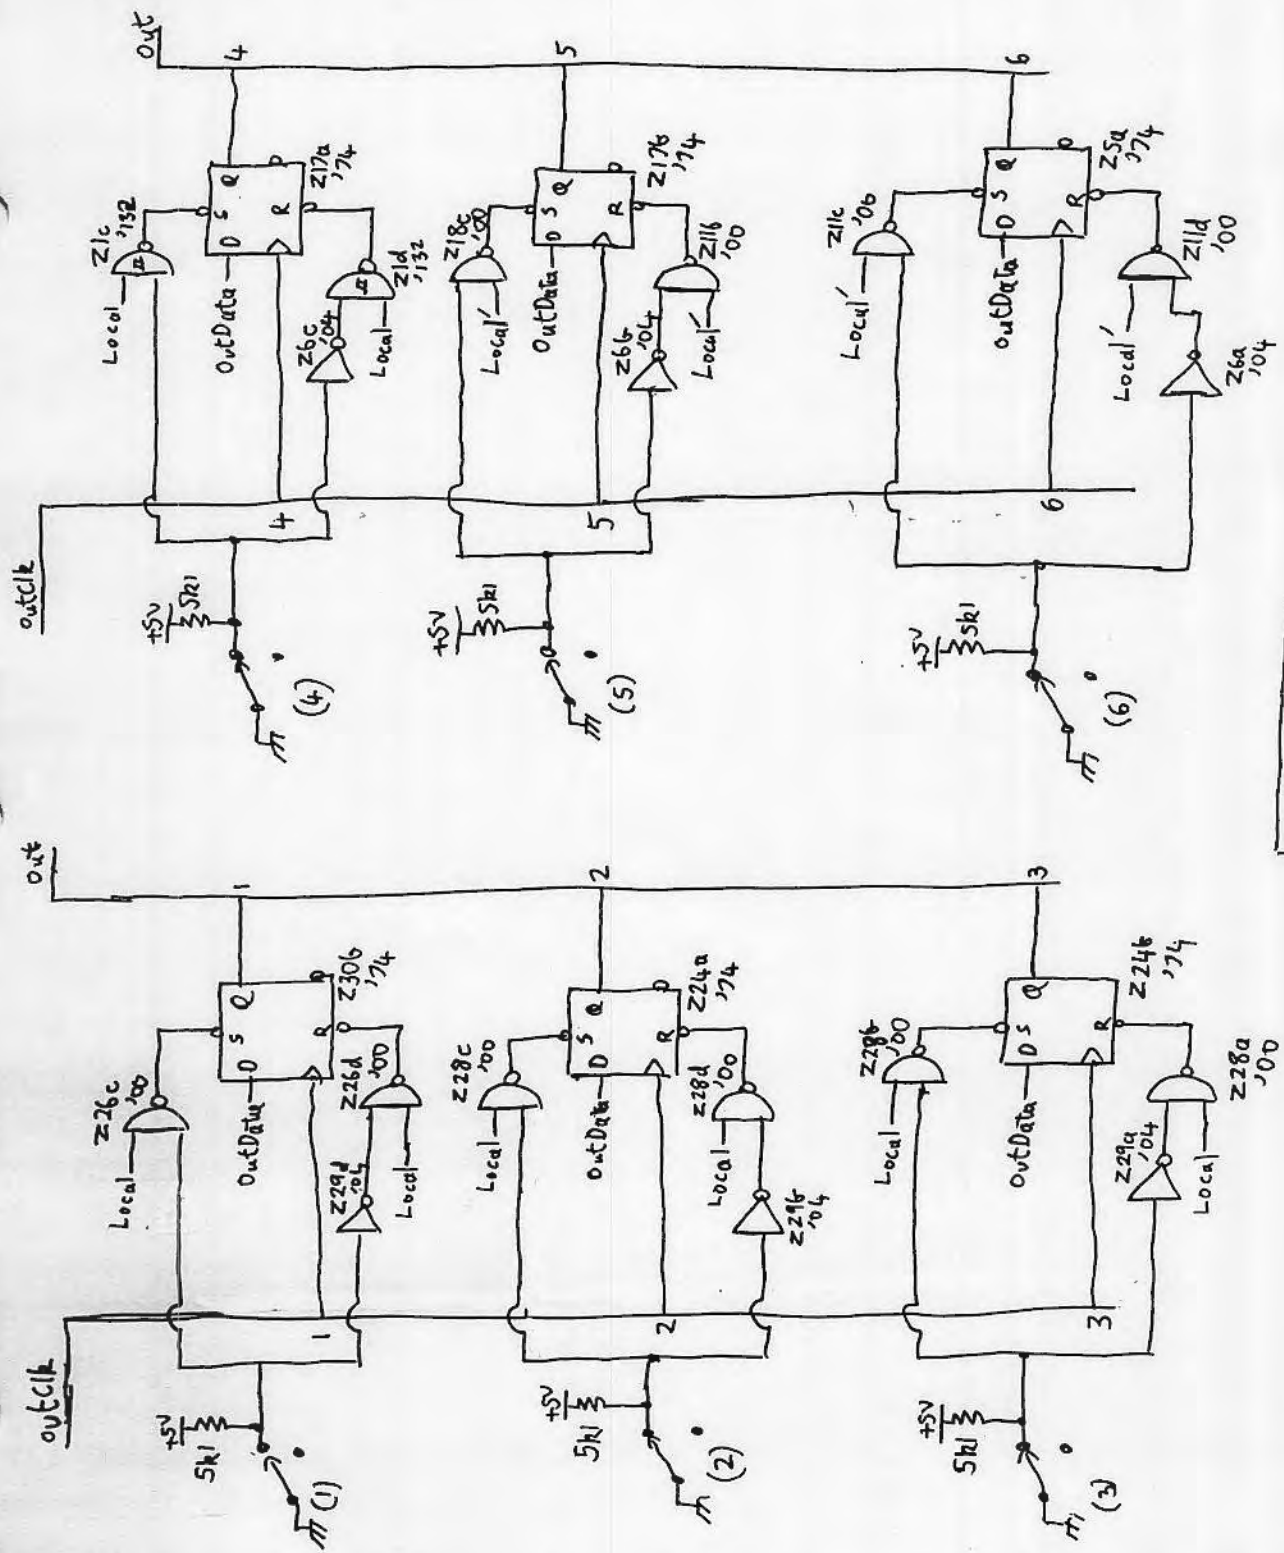 outClk
Out
+5V
5k1
(1)
1
Local
Z26c
'00
OutData
D
S
Q
R
Z30b
'74
Z29d
'04
Local
Z26d
'00
1
+5V
5k1
(2)
2
Local
Z28c
'00
OutData
D
S
Q
R
Z24a
'74
Z29b
'04
Local
Z28d
'00
2
+5V
5k1
(3)
3
Local
Z28b
'00
OutData
D
S
Q
R
Z24b
'74
Z29a
'04
Local
Z28a
'00
3
outClk
Out
+5V
5k1
(4)
4
Local
Z1c
'132
OutData
D
S
Q
R
Z17a
'74
Z6c
'04
Local
Z1d
'132
4
+5V
5k1
(5)
5
Local'
Z18c
'00
OutData
D
S
Q
R
Z17b
'74
Z6b
'04
Local'
Z11b
'00
5
+5V
5k1
(6)
6
Local'
Z11c
OutData
D
S
Q
R
Z5a
'74
Z6a
'04
Local'
Z11d
'00
6